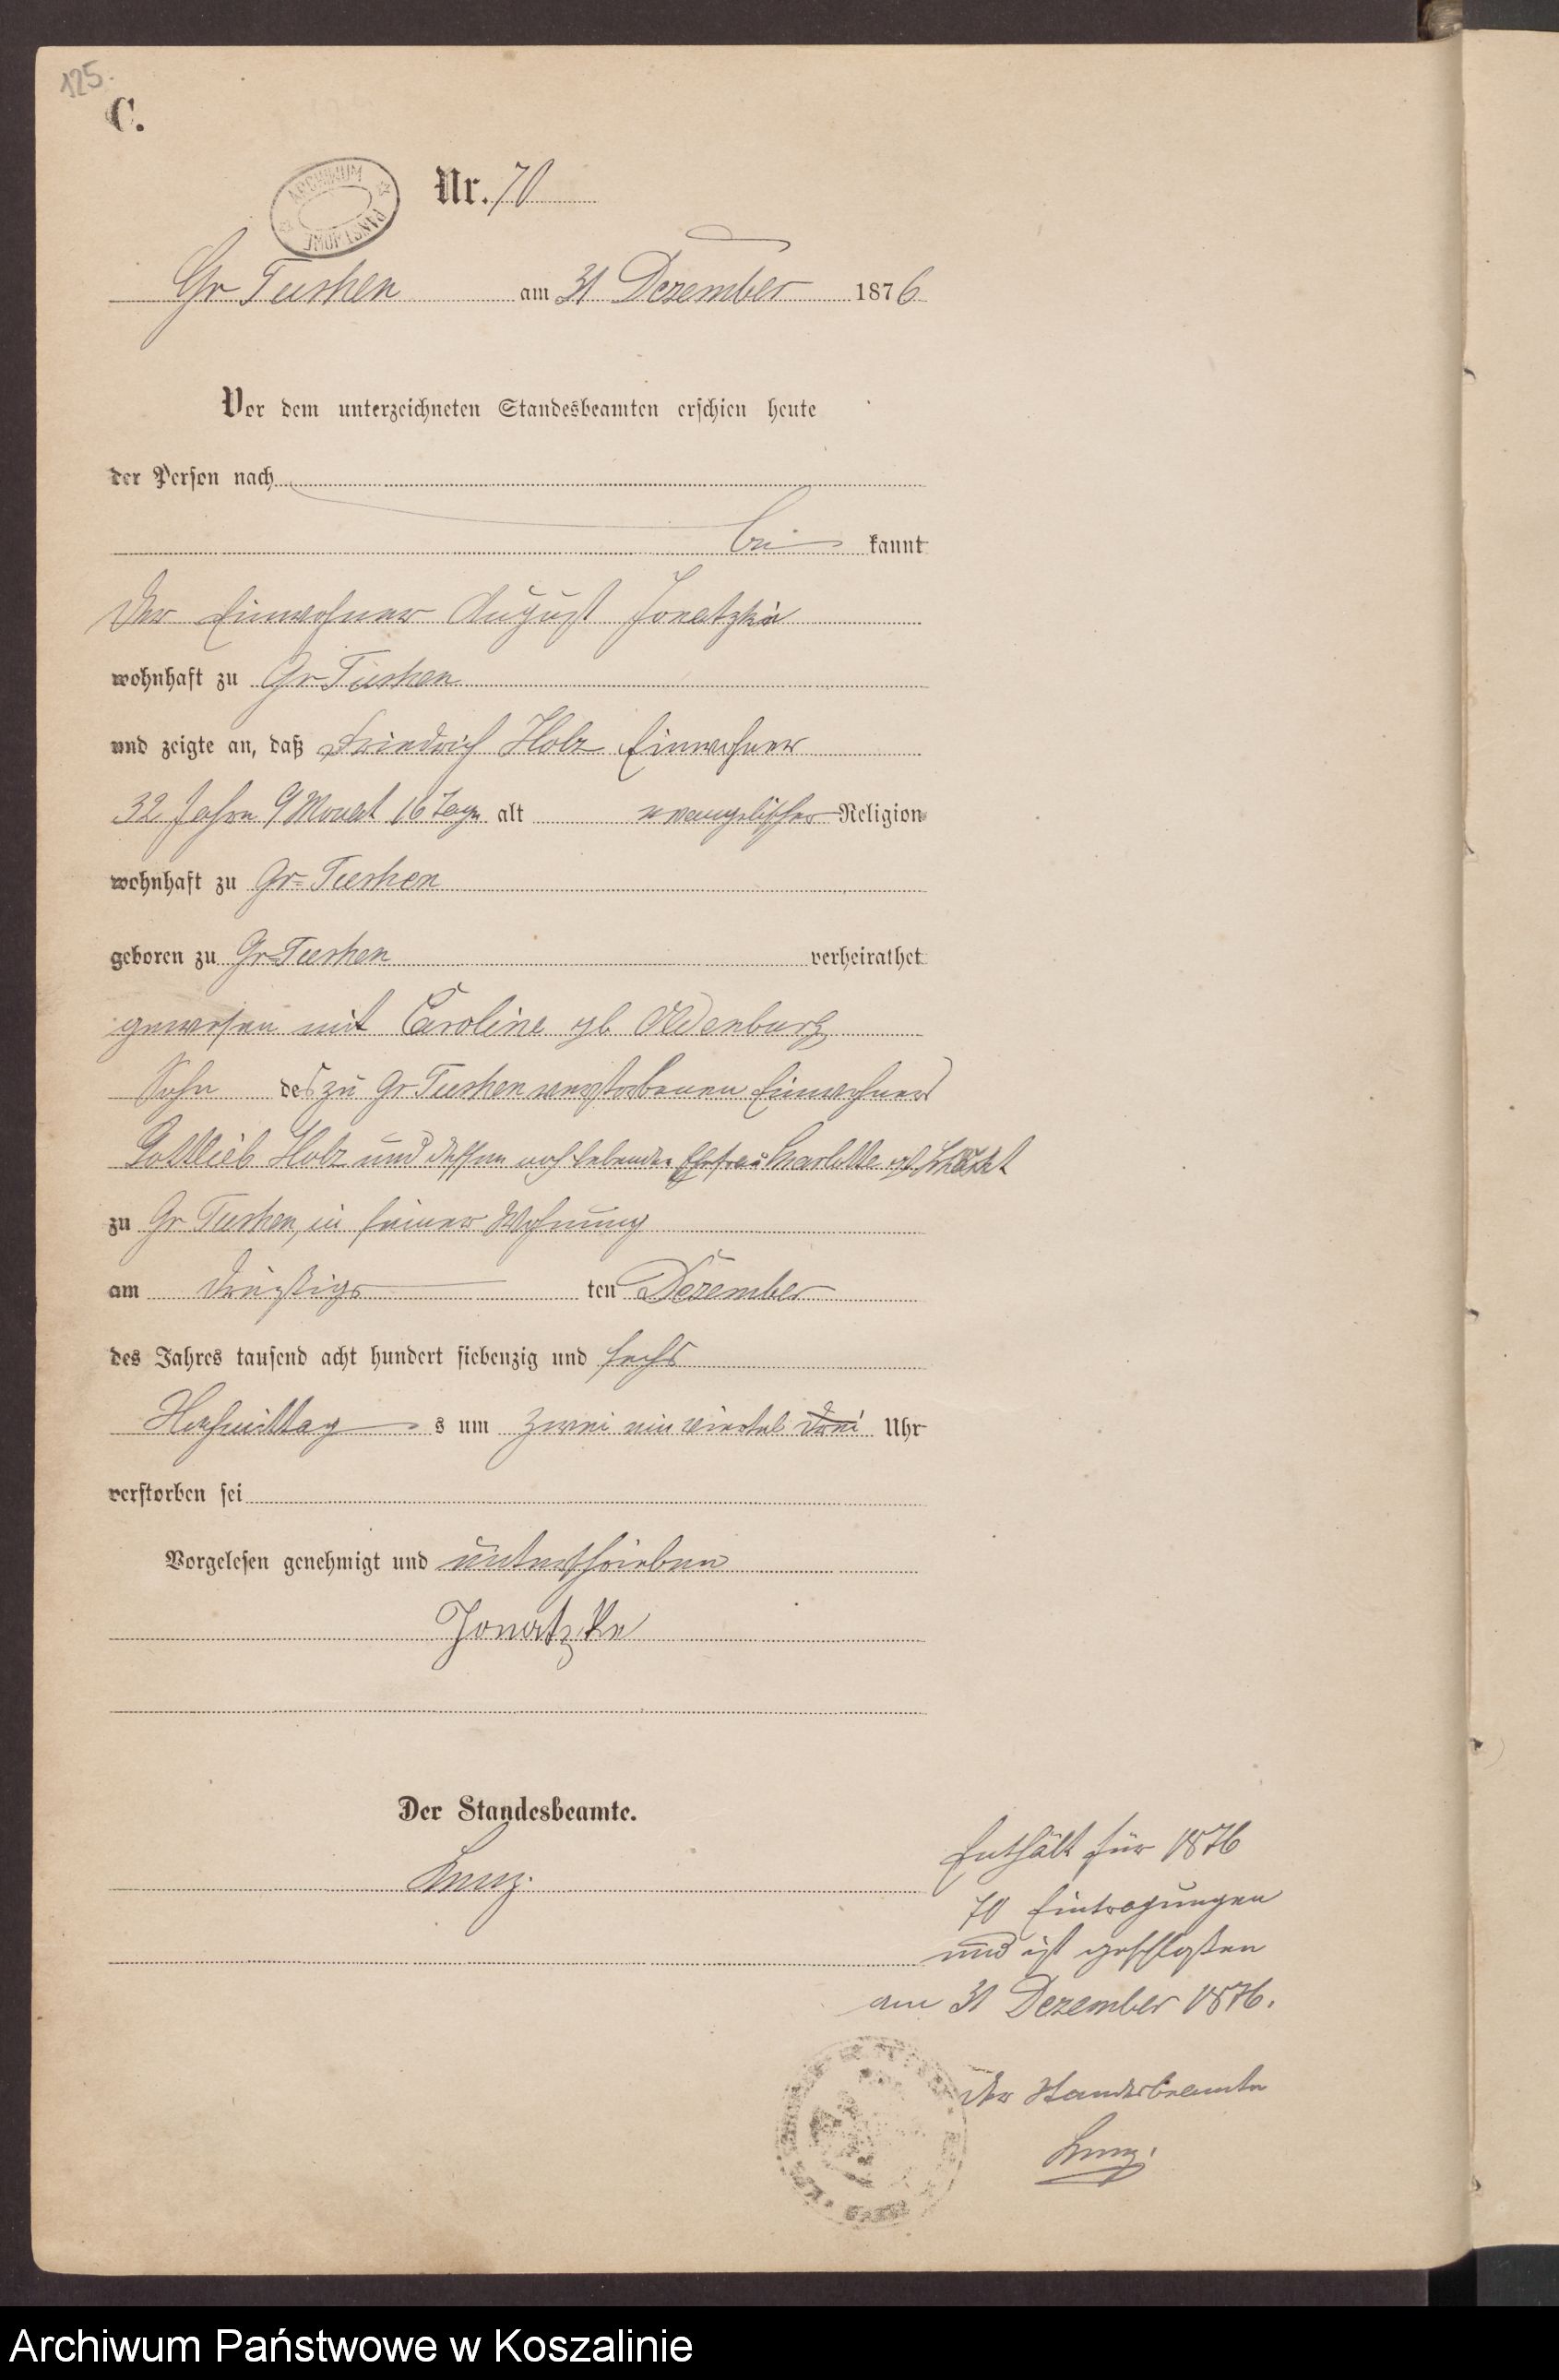 125.
C.
ARCHIWUM PAŃSTWOWE
Nr. 70
Gr Tuchen am 31 Dezember 1876
Vor dem unterzeichneten Standesbeamten erschien heute
der Person nach
be kannt
der Einwohner August Jonatzke
wohnhaft zu Gr Tuchen
und zeigte an, daß Friedrich Holz Einwohner
32 Jahre 9 Monat 16 Tage alt evangelischer Religion
wohnhaft zu Gr-Tuchen
geboren zu Gr-Tuchen verheirathet
gewesen mit Caroline geb Oldenburg
Sohn des zu Gr Tuchen verstorbenen Einwohners
Gottlieb Holz und dessen noch lebender Ehefrau Charlotte geb
zu Gr Tuchen, in seiner Wohnung
am dreißigs ten Dezember
des Jahres tausend acht hundert siebenzig und sechs
Nachmittag s um zwei ein viertel drei Uhr
verstorben sei
Vorgelesen genehmigt und unterschrieben
Jonatzke
Der Standesbeamte.
Enthält für 1876
70 Eintragungen
und ist geschloßen
am 31 Dezember 1876.
Der Standesbeamte
Archiwum Państwowe w Koszalinie